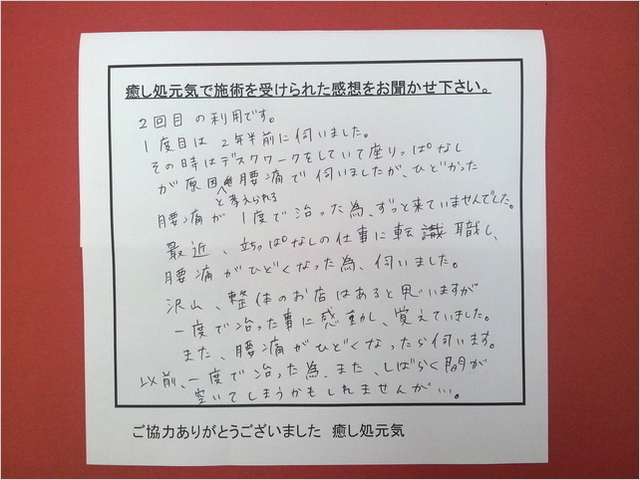 癒し処元気で施術を受けられた感想をお聞かせ下さい。
2回目の利用です。
1度目は2年半前に伺いました。
その時はデスクワークをしていて座りっぱなし
が原因と考えられる腰痛で伺いましたが、ひどかった
腰痛が1度で治った為、ずっと来ていませんでした。
最近、立ちっぱなしの仕事に転職し、
腰痛がひどくなった為、伺いました。
沢山、整体のお店はあると思いますが
一度で治った事に感動し、覚えていました。
また、腰痛がひどくなったら伺います。
以前、一度で治った為、また、しばらく間が
空いてしまうかもしれませんが…。
ご協力ありがとうございました 癒し処元気